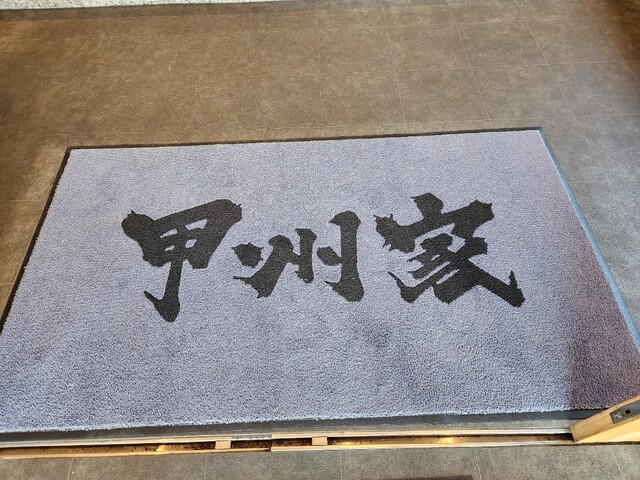 甲州家